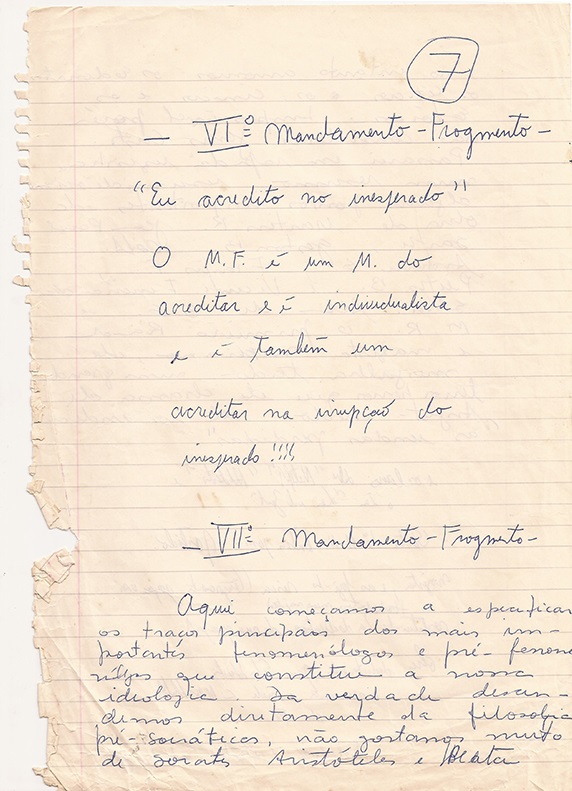 7
- VIº Mandamento - Fragmento -
"Eu acredito no inesperado"
O M.F. é um M. do
acreditar e é individualista
e é também um
acreditar na irrupção do
inesperado !!!!
- VIIº Mandamento - Fragmento -
Aqui começamos a especificar
os traços principais dos mais im-
portantes fenomenólogos e pré-fenome
que constituem a nossa
ideologia. Da verdade descen-
demos diretamente da filosofia
pré-socráticos, não gostamos muito
de Aristóteles e